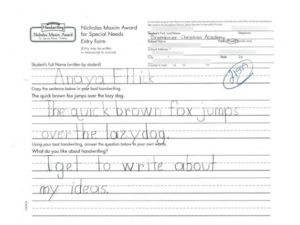 Handwriting
Nicholas Maxim Award
Nicholas Maxim Award
for Special Needs
Entry Form
(Entry may be written
in manuscript or cursive)
Christian Academy
Student's Full Name (written by student)
Anaya Ellik
Copy the sentence below in your best handwriting.
The quick brown fox jumps over the lazy dog.
The quick brown fox jumps
over the lazy dog.
Using your best handwriting, answer the question below in your own words.
What do you like about handwriting?
I get to write about
my ideas.